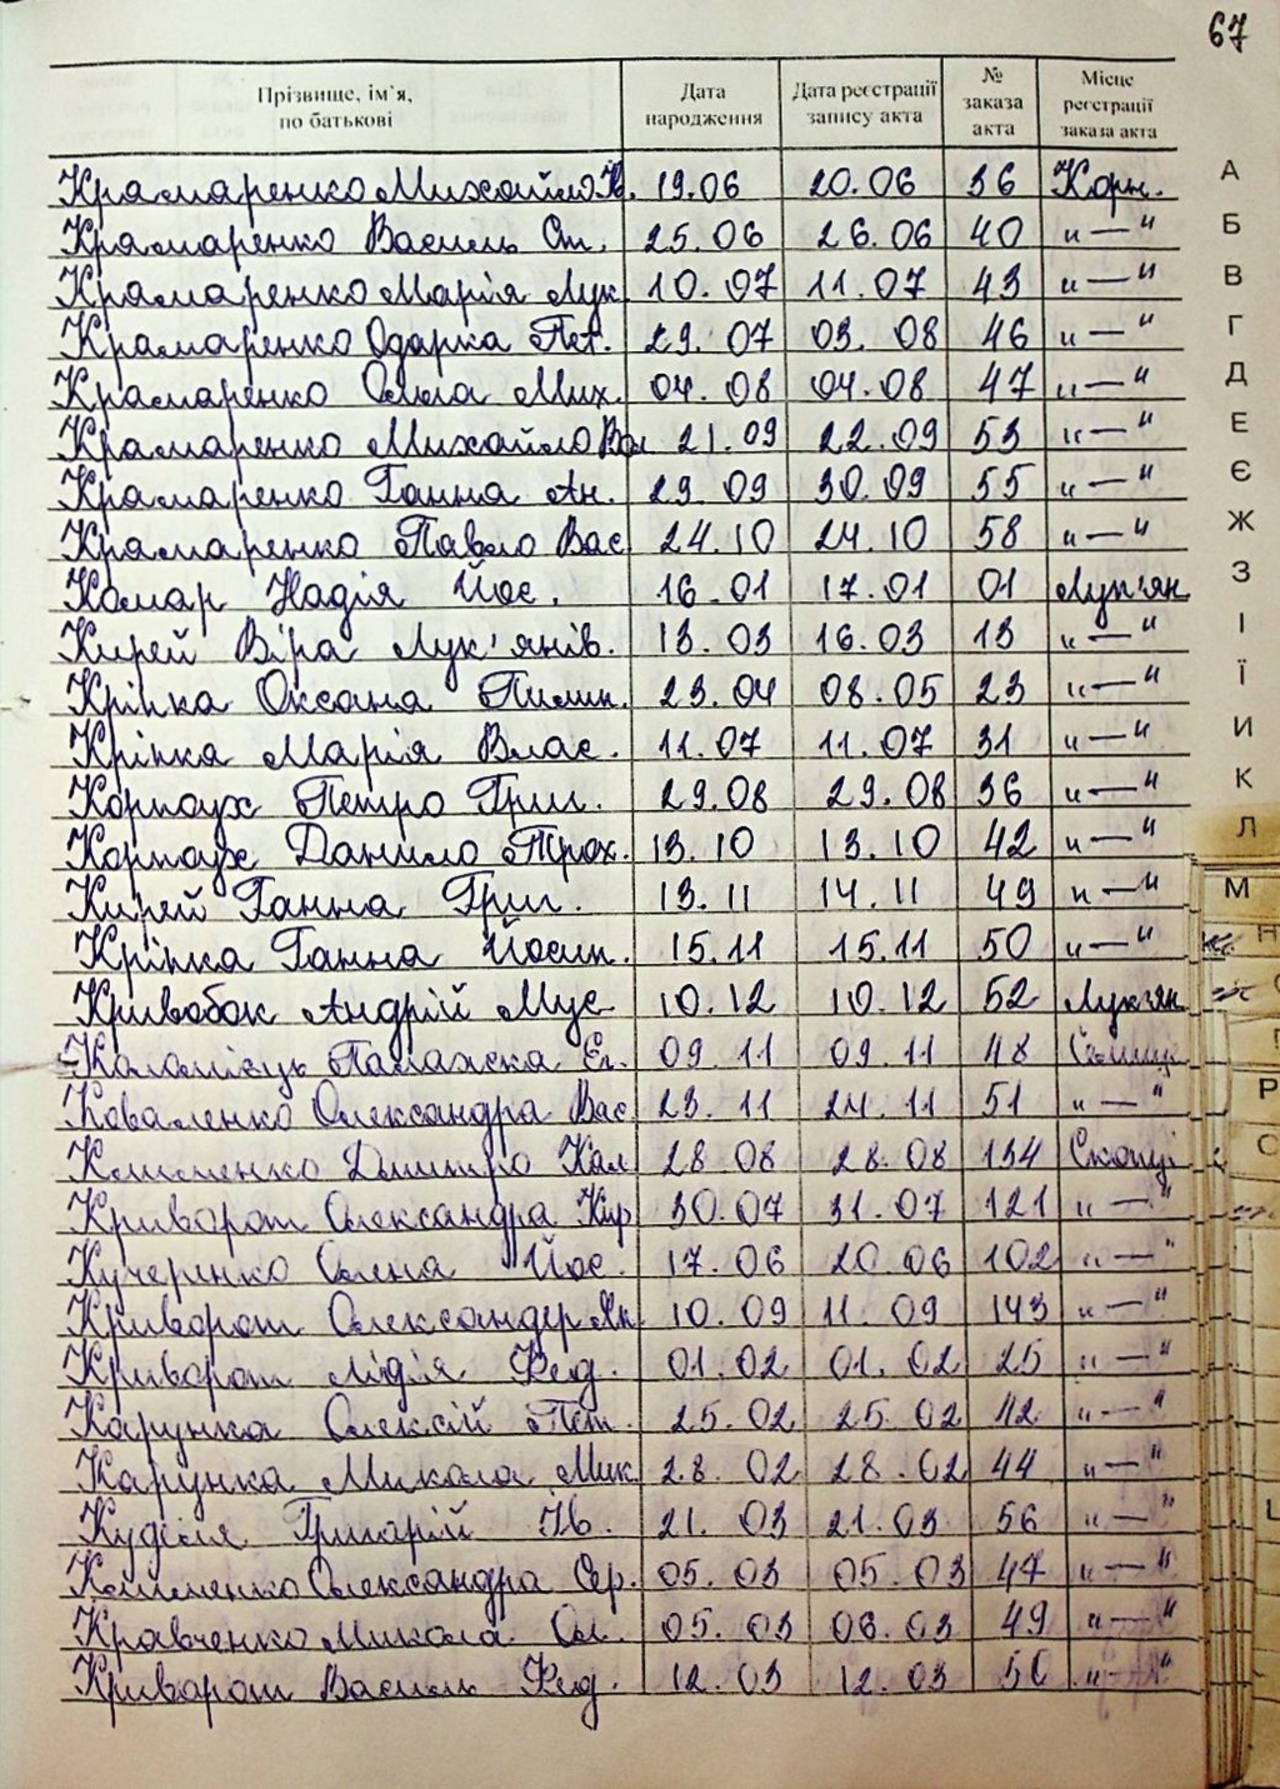 67
Прізвище, ім'я, по батькові Дата народження Дата реєстрації запису акта № заказа акта Місце реєстрації заказа акта
Крамаренко Михайло Ів. 19.06 20.06 36 Корн.
Крамаренко Василь Ол. 25.06 26.06 40 "—"
Крамаренко Марія Лук. 10.07 11.07 43 "—"
Крамаренко Одарка Пет. 29.07 03.08 46 "—"
Крамаренко Ольга Мих. 04.08 04.08 47 "—"
Крамаренко Михайло Вол 21.09 22.09 53 "—"
Крамаренко Ганна Ан. 29.09 30.09 55 "—"
Крамаренко Павло Вас 24.10 24.10 58 "—"
Комар Надія Йос. 16.01 17.01 01 Лук'ян
Кирей Віра Лук'янів. 13.03 16.03 13 "—"
Кріпка Оксана Пилип. 23.04 08.05 23 "—"
Кріпка Марія Влас. 11.07 11.07 31 "—"
Корпоух Петро Григ. 29.08 29.08 36 "—"
Корпоух Данило Трох. 13.10 13.10 42 "—"
Кирей Ганна Григ. 13.11 14.11 49 "—"
Кріпка Ганна Йосип. 15.11 15.11 50 "—"
Кривобок Андрій Мус 10.12 10.12 52 Лук'ян
Коломієць Палажка Єг. 09.11 09.11 48
Коваленко Олександра Вас. 23.11 24.11 51 "—"
Клименко Дмитро Кал 28.08 28.08 134 Скопці
Криворот Олександра Кир 30.07 31.07 121 "—"
Кучеренко Олена Йос. 17.06 20.06 102 "—"
Криворот Олександер Як. 10.09 11.09 143 "—"
Криворот Лідія Фед. 01.02 01.02 25 "—"
Карунка Олексій Пет. 25.02 25.02 42 "—"
Карунка Микола Мик. 28.02 28.02 44 "—"
Куділя Григорій Ів. 21.03 21.03 56 "—"
Клименко Олександра Сер. 05.03 05.03 47 "—"
Кравченко Микола Ол. 05.03 06.03 49 "—"
Криворот Василь Фед. 12.03 12.03 50 "—"
А
Б
В
Г
Д
Е
Є
Ж
З
І
Ї
И
К
Л
М
Н
Р
С